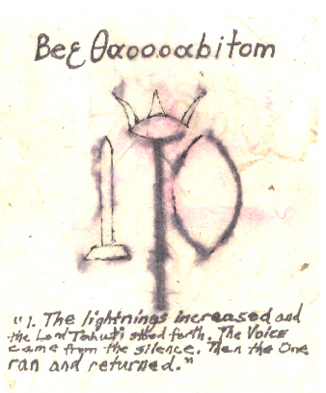 Beε θαοοοαbitom
"1. The lightnings increased and
the Lord Tahuti stood forth. The Voice
came from the silence. Then the One
ran and returned."